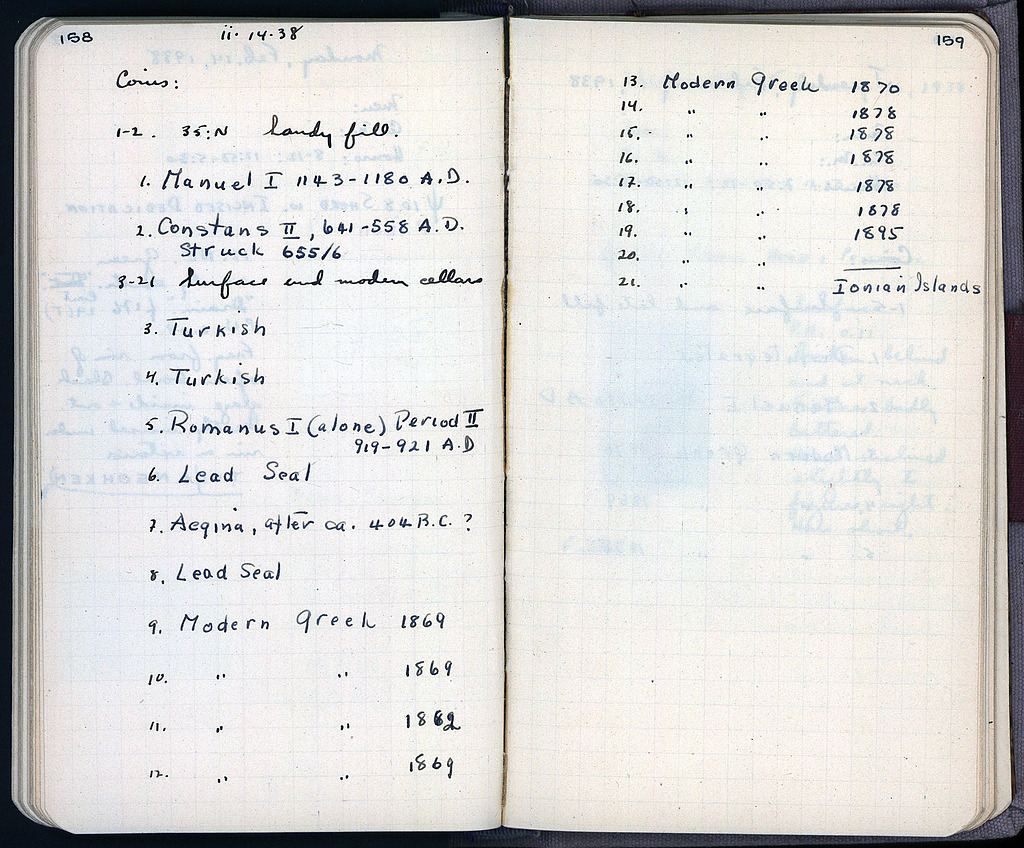 158
ii-14-38
Coins:
1-2. 35:N Sandy fill.
1. Manuel I 1143-1180 A.D.
2. Constans II, 641-558 A.D.
Struck 655/6
3-21 Surface and modern cellars
3. Turkish
4. Turkish
5. Romanus I (alone) Period II
919-921 A.D
6. Lead Seal
7. Aegina, after ca. 404 B.C. ?
8. Lead Seal
9. Modern Greek 1869
10. " " 1869
11. " " 1869
12. " " 1869
159
13. Modern Greek 1870
14. " " 1878
15. " " 1878
16. " " 1878
17. " " 1878
18. " " 1878
19. " " 1895
20. " " ____
21. " " Ionian Islands